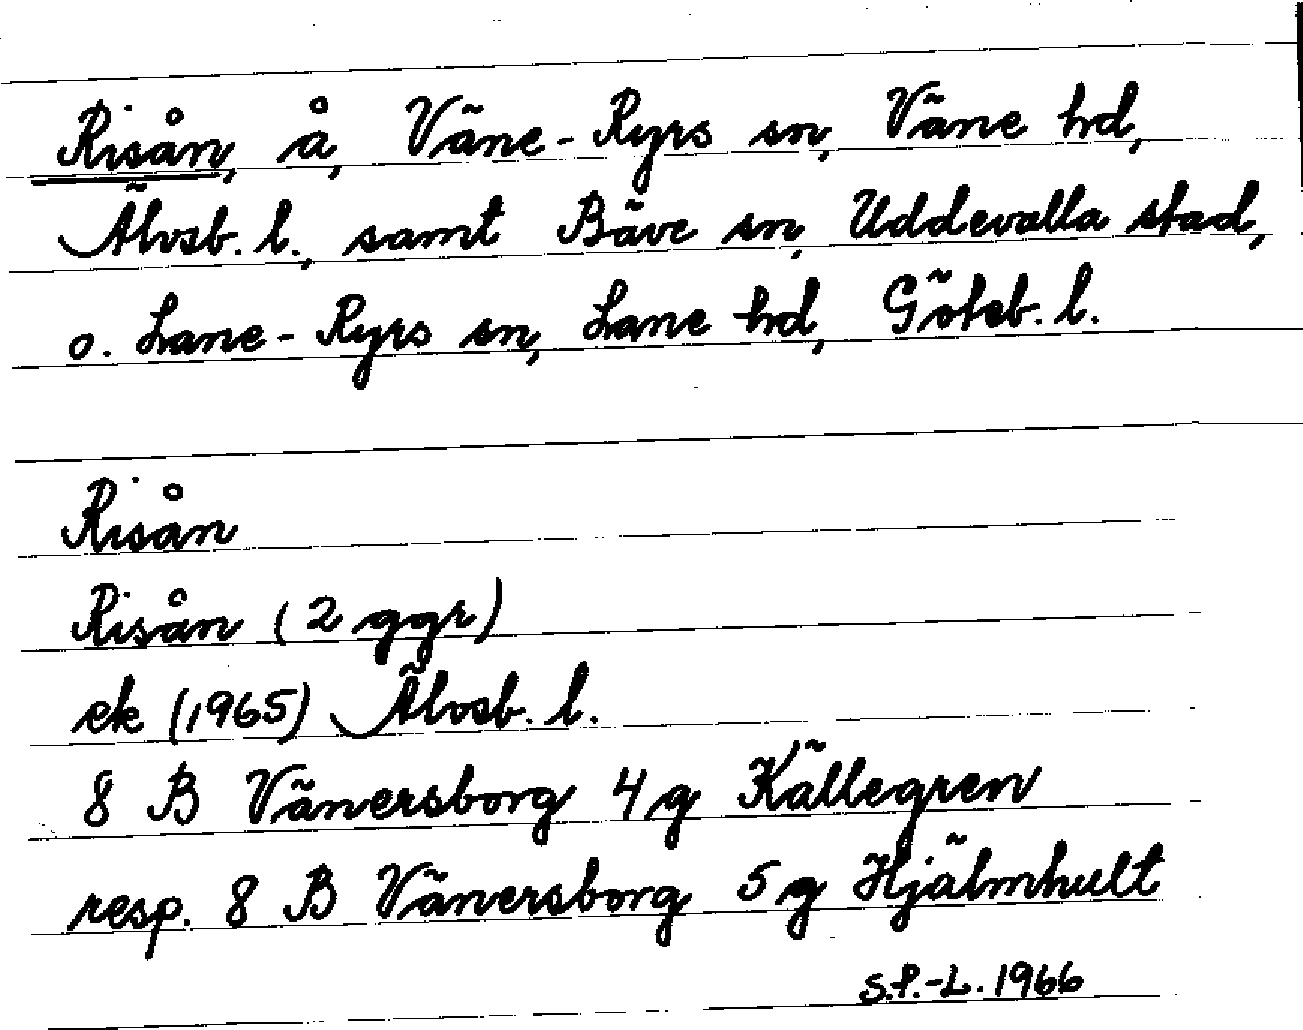 Risån, å, Väne-Ryrs sn, Väne hd,
Älvsb. l., samt Bäve sn, Uddevalla stad,
o. Lane-Ryrs sn, Lane hd, Göteb. l.
Risån
Risån (2 ggr)
ek (1965) Älvsb. l.
8 B Vänersborg 4 g Källegren
resp. 8 B Vänersborg 5 g Hjälmhult
S.P.-L. 1966